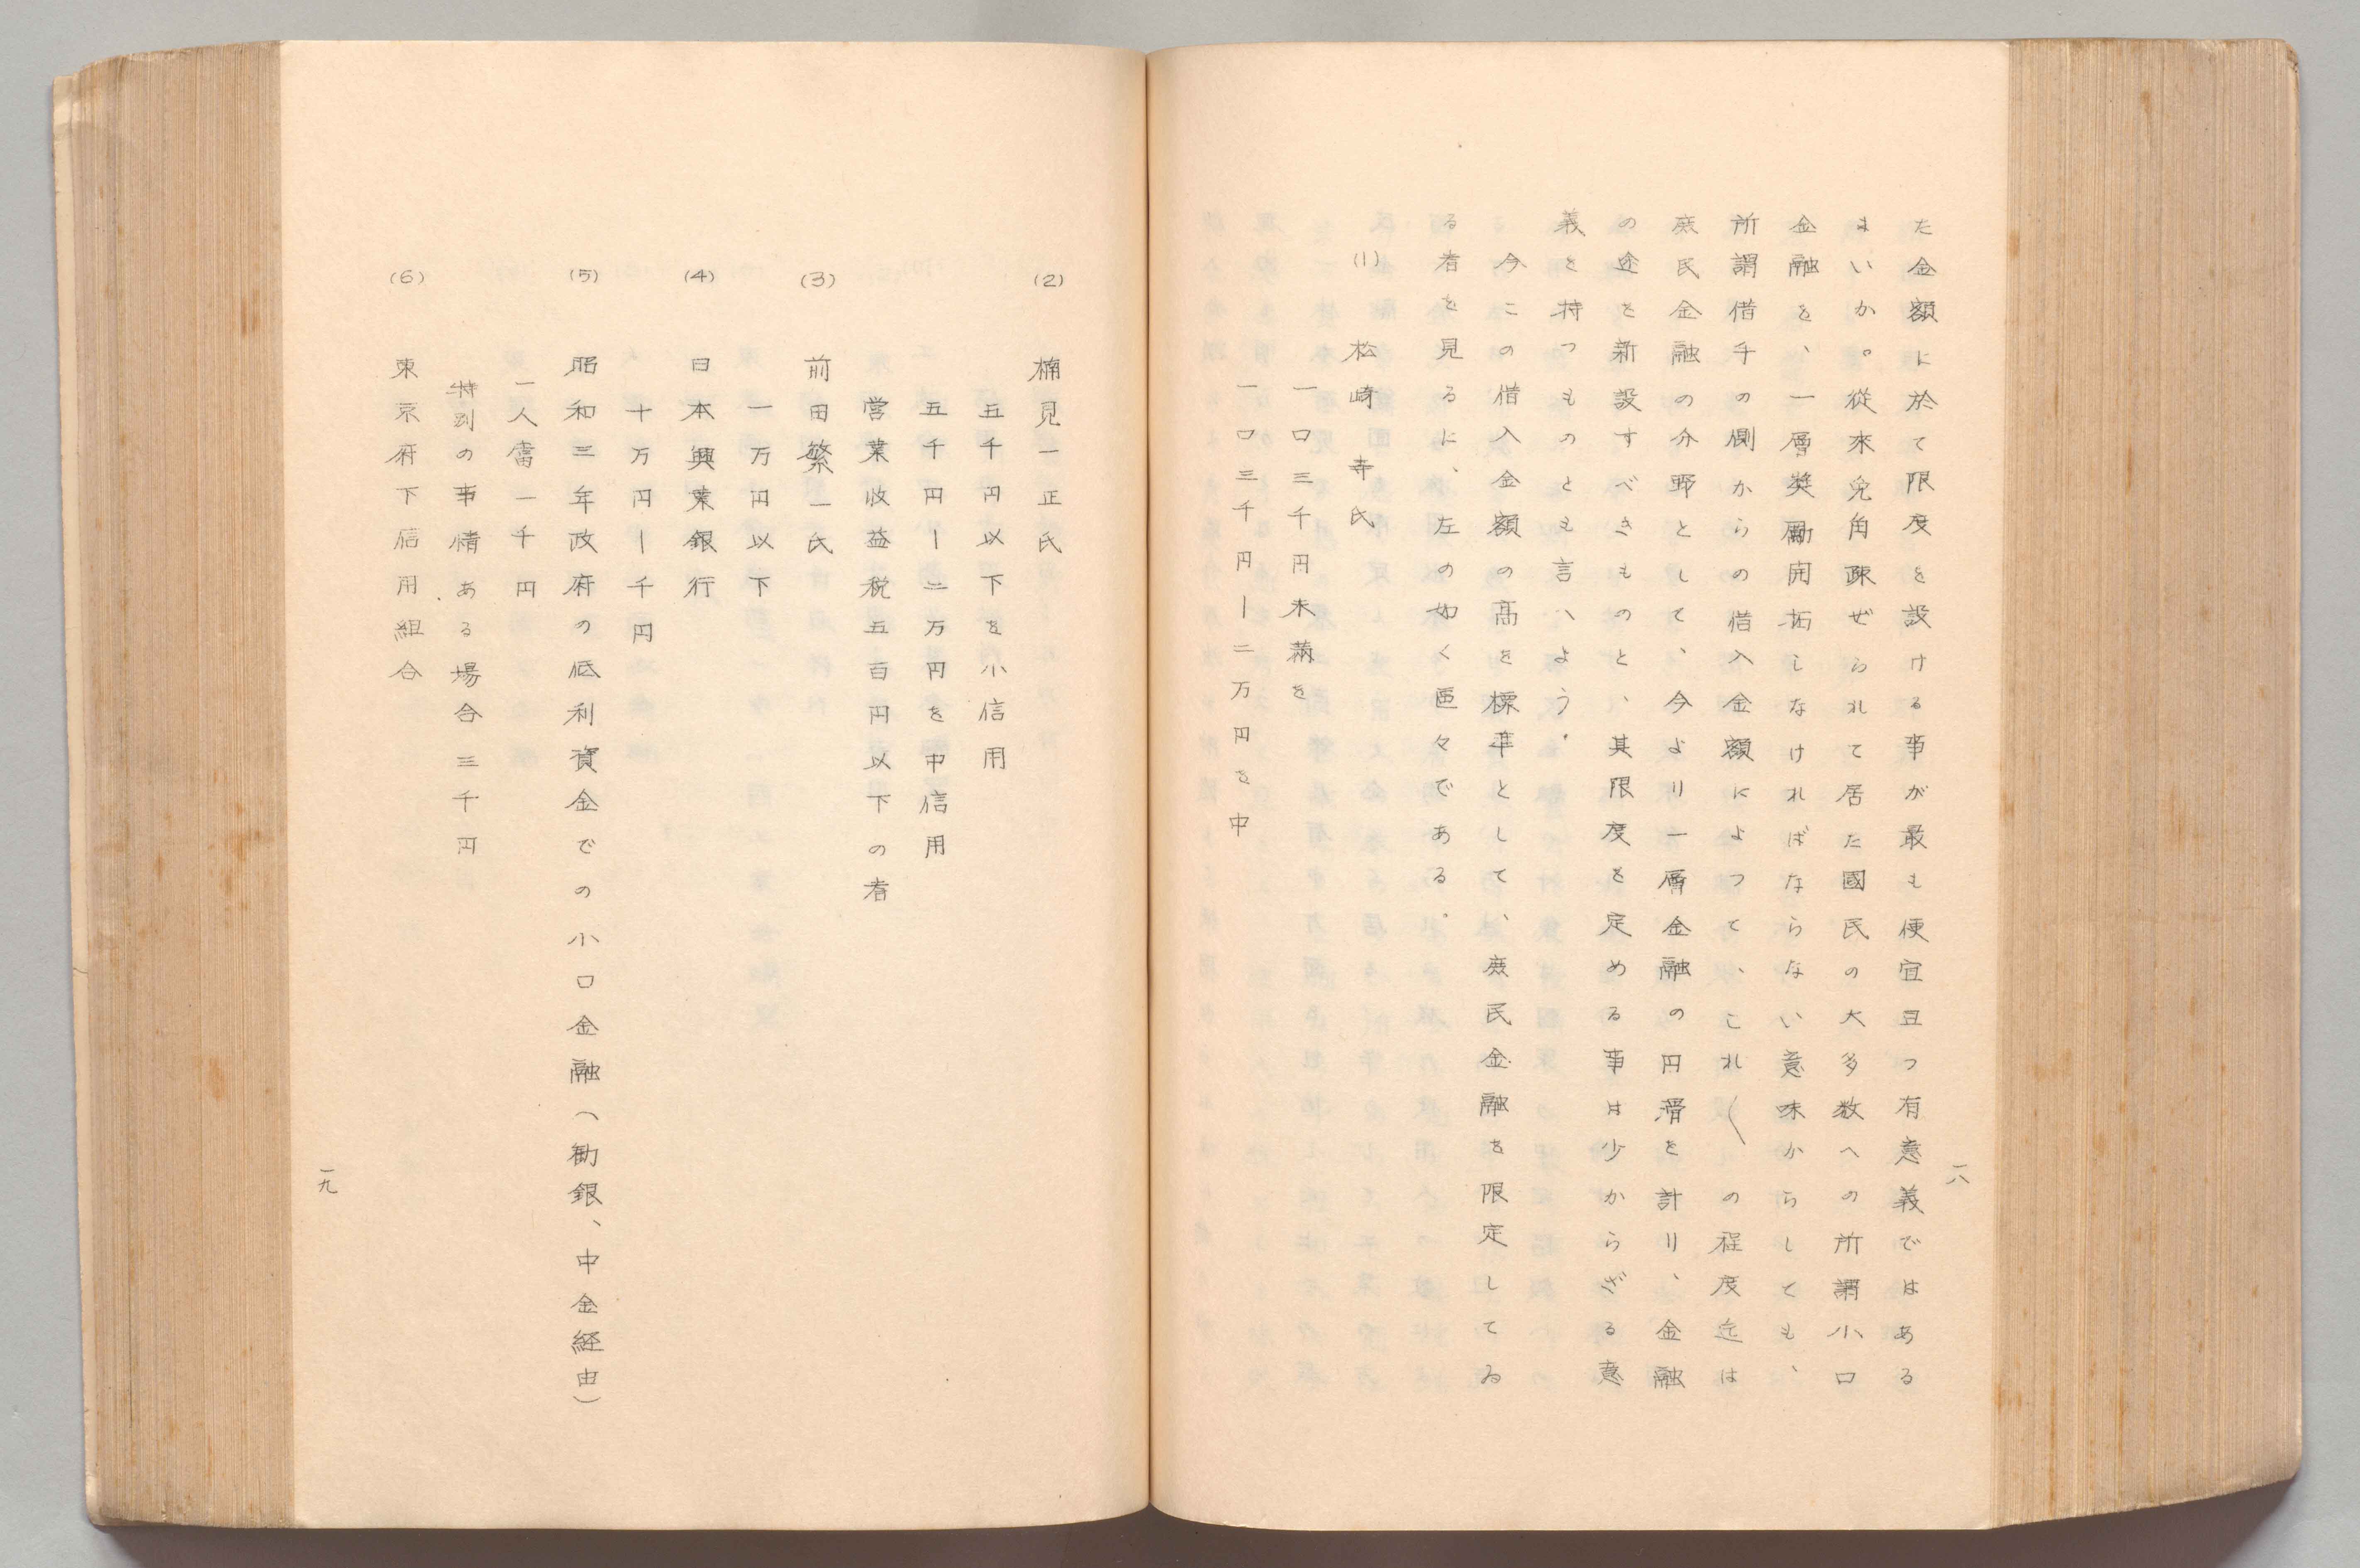 一八
た金額に於て限度を設ける事が最も便宜且つ有意義ではある
まいか。從來兔角疎ぜられて居た國民の大多数への所謂小口
金融を、一層奬勵開拓しなければならない意味からしても、
所謂借手の側からの借入金額によつて、これ〱の程度迄は
庶民金融の分野として、今より一層金融の円滑を計り、金融
の途を新設すべきものと、其限度を定める事は少からざる意
義を持つものとも言へよう。
今この借入金額の高を標準として、庶民金融を限定してゐ
る者を見るに、左の如く区々である。
(1) 松崎寿氏
一口三千円未満を
一口三千円ー二万円を中
(2) 楠見一正氏
五千円以下を小信用
五千円ー二万円を中信用
営業收益税五百円以下の者
(3) 前田繁一氏
一万円以下
(4) 日本興業銀行
十万円ー千円
(5) 昭和三年政府の低利資金での小口金融(勧銀、中金経由)
一人當一千円
特別の事情ある場合三千円
(6) 東京府下信用組合
一九